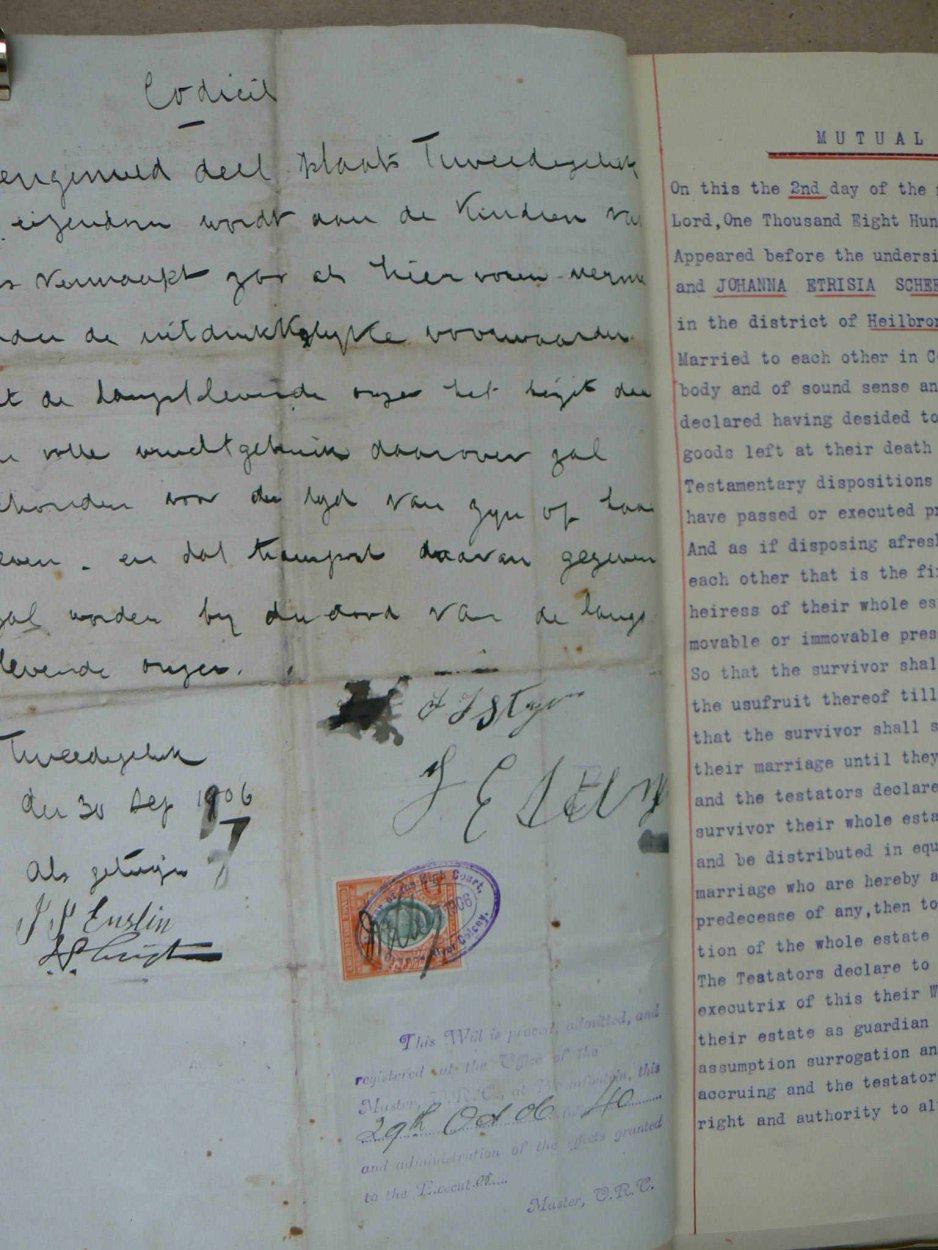 Codicil
deel plaats Tweedegeluk
eigendom wordt aan de Kinderen va
vermaakt zoo als hier voren verme
de uitdrukkelyke voorwaarden
t de langstlevende onzer het zij de
volle vruchtgebruik daarover zal
ehouden voor den tyd van zyn of haar
even. en dat transport daarvan gegeven
zal worden by den dood van de langst
levende onzer.
Tweedegeluk
den 30 Sep 1906
Als getuigen
J J Enslin
This Will is proved, admitted, and
registered at the Office of the
Master, O.R.C., at Bloemfontein, this
29th Octob
and administration of the effects granted
to the Execut
Master, O.R.C.
of the High Court,
River Colony
MUTUAL
On this the 2nd day of the
Lord,One Thousand Eight Hun
Appeared before the undersi
and JOHANNA ETRISIA SCHE
in the district of Heilbron
Married to each other in C
body and of sound sense an
declared having desided to
goods left at their death
Testamentary dispositions
have passed or executed p
And as if disposing afresh
each other that is the fi
heiress of their whole es
movable or immovable pres
So that the survivor shal
the usufruit thereof till
that the survivor shall s
their marriage until they
and the testators declare
survivor their whole esta
and be distributed in equ
marriage who are hereby a
predecease of any,then to
tion of the whole estate
The Teatators declare to
executrix of this their W
their estate as guardian
assumption surrogation an
accruing and the testator
right and authority to al